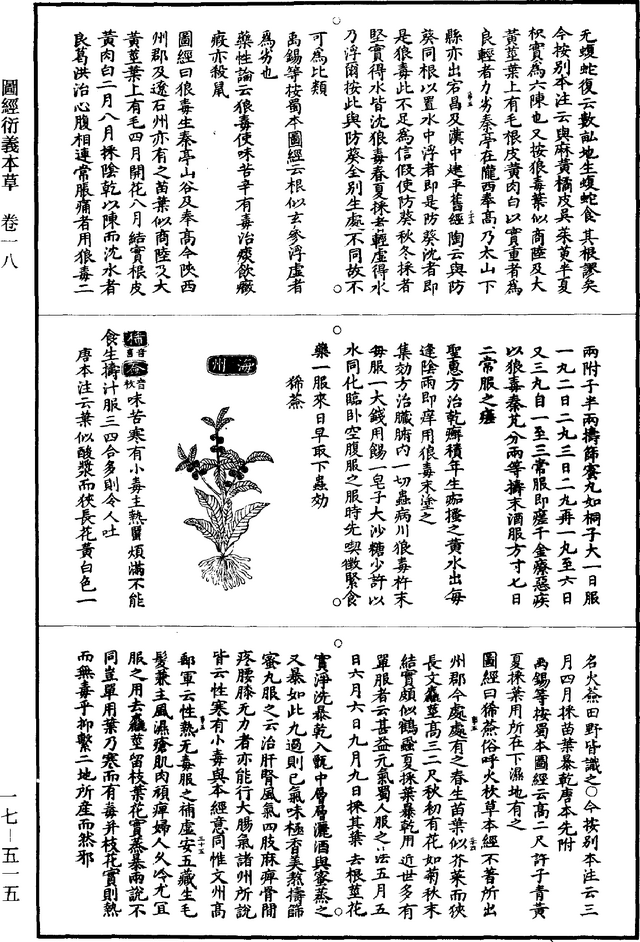 圖經衍義本草　卷一八
无蝮蛇復云數畝地生蝮蛇食其根謬矣
今按别本注云與麻黄橘皮吳茱黄半夏
枳實為六陳也又按狼毒葉似商陸及大
黄莖葉上有毛根皮黄肉白以實重者為
良輕者力劣秦亭在隴西奉高乃太山下
縣亦出宕昌及漢中建平舊經陶云與防
葵同根以置水中浮者即是防葵沈者即
是狼毒此不足為信假使防葵秋冬採者
堅實得水皆沈狼毒春夏採者輕虚得水
乃浮爾按此與防葵全别生處不同故不
可為比類
禹錫等按蜀本圖經云根似玄參浮虚者
為劣也
藥性論云狼毒使味苦辛有毒治痰飲癥
瘕亦殺鼠
圖經曰狼毒生秦亭山谷及奉高今陝西
州郡及遼石州亦有之苗葉似商陸及大
黄莖葉上有毛四月開花八月結實根皮
黄肉白二月八月採陰乾以陳而沈水者
良葛洪治心腹相連常脹痛者用狼毒二
兩附子半兩擣篩蜜丸如桐子大一日服
一九二日二九三日二九再一九至六日
又三九自一至三常服即瘥千金療惡疾
以狼毒秦艽分兩等擣末酒服方寸七日
二常服之瘥
聖惠方治乾癬積年生痂搔之黄水出每
逢陰雨即痒用狼毒末塗之
集効方治臓腑内一切蟲病川狼毒杵末
每服一大錢用餳一皂子大沙糖少許以
水同化臨卧空腹服之服時先喫微緊食
藥一服來日早取下蟲効
豨薟
海州
豨音喜薟音枚味苦寒有小毒主熱䘌煩滿不能
食生擣汁服三四合多則令人吐
唐本注云葉似酸漿而狹長花黄白色一
名火薟田野皆識之○今按别本注云三
月四月採苗葉暴乾唐本先附
禹錫等按蜀本圖經云高二尺許子青黄
夏採葉用所在下濕地有之
圖經曰豨薟俗呼火杴草本經不著所出
州郡今處處有之春生苗葉似芥葉而狹
長文麤莖高三二尺秋初有花如菊秋末
結實頗似鶴蝨夏採葉暴乾用近世多有
單服者云甚益元氣蜀人服之法五月五
日六月六日九月九日採其葉去根莖花
實淨洗暴乾入甑中層層灑酒與蜜蒸之
又暴如此九過則已氣味極香美熬擣篩
蜜九服之云治肝腎風氣四肢麻痺骨間
疼腰膝无力者亦能行大腸氣諸州所說
皆云性寒有小毒與本經意同惟文州高
郵軍云性熱无毒服之補虚安五藏生毛
髮兼主風濕瘡肌肉頑痺婦人久冷尤宜
服之用去麤莖留枝葉花實蒸暴兩說不
同豈單用葉乃寒而有毒并枝花實則熱
而無毒乎抑繫二地所産而然邪
一七—五一五